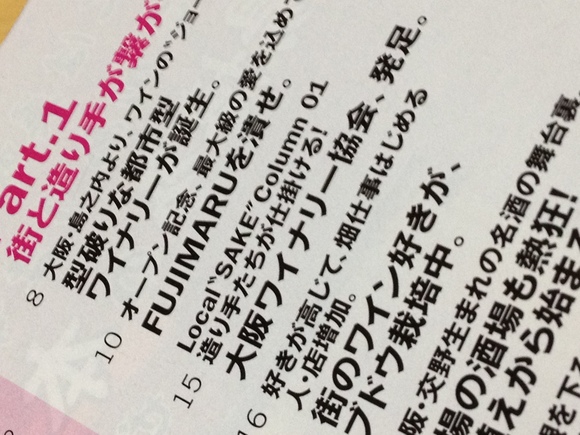 art.1
街と造り手が繋が
8 大阪・島之内より、ワインの“ジョー
型破りな都市型
ワイナリーが誕生。
10 オープン記念、最大級の愛を込めて
FUJIMARUを潰せ。
15 Local“SAKE”Column 01
造り手たちが仕掛ける!
大阪ワイナリー協会、発足。
16 好きが高じて、畑仕事はじめる
人・店増加。
街のワイン好きが、
ブドウ栽培中。
阪・交野生まれの名酒の舞台裏。
場の酒場も熱狂!
えから始まる